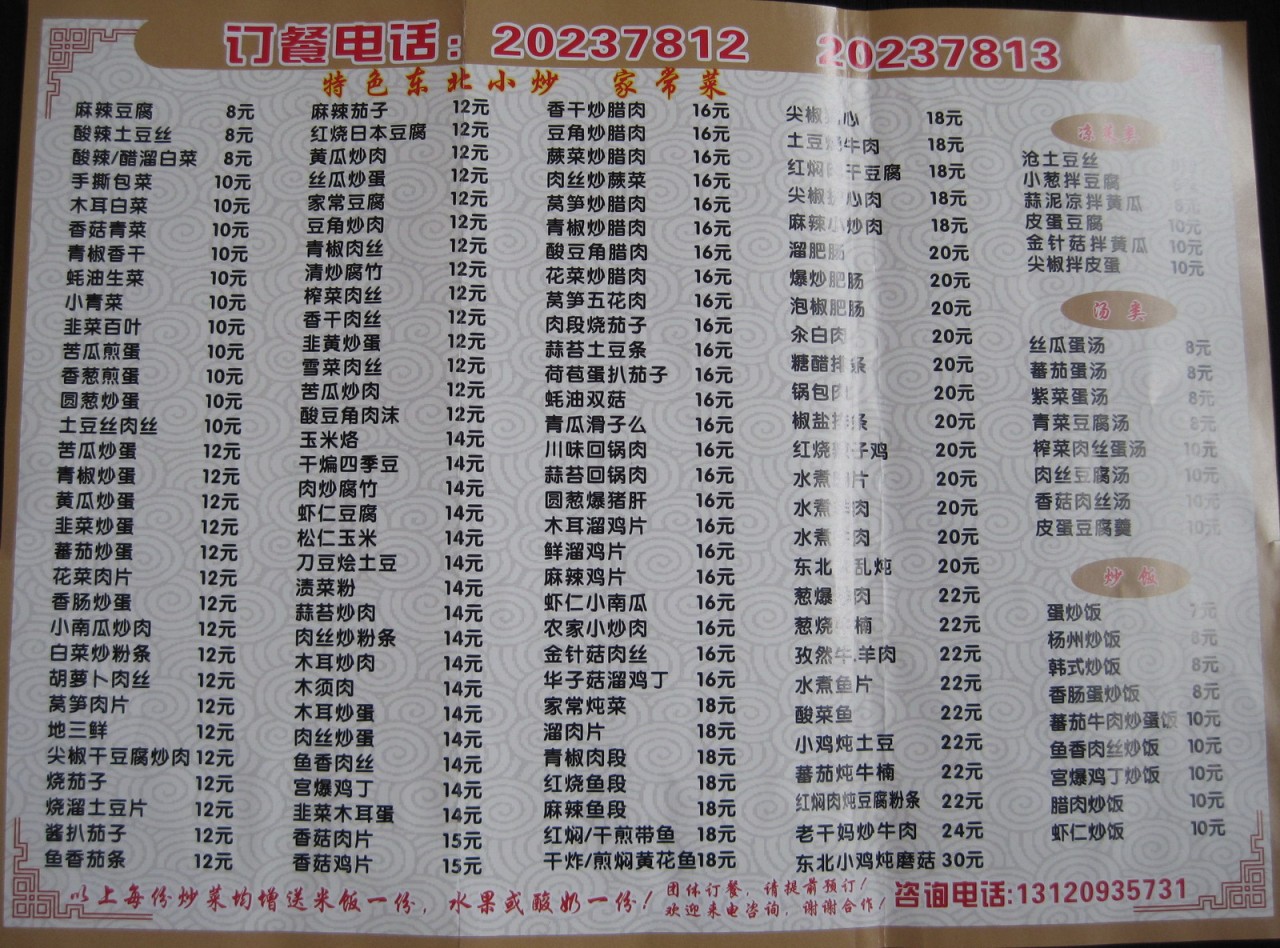 订餐电话：20237812 20237813
特色东北小炒 家常菜
麻辣豆腐 8元
酸辣土豆丝 8元
酸辣/醋溜白菜 8元
手撕包菜 10元
木耳白菜 10元
香菇青菜 10元
青椒香干 10元
蚝油生菜 10元
小青菜 10元
韭菜百叶 10元
苦瓜煎蛋 10元
香葱煎蛋 10元
圆葱炒蛋 10元
土豆丝肉丝 10元
苦瓜炒蛋 12元
青椒炒蛋 12元
黄瓜炒蛋 12元
韭菜炒蛋 12元
蕃茄炒蛋 12元
花菜肉片 12元
香肠炒蛋 12元
小南瓜炒肉 12元
白菜炒粉条 12元
胡萝卜肉丝 12元
莴笋肉片 12元
地三鲜 12元
尖椒干豆腐炒肉 12元
烧茄子 12元
烧溜土豆片 12元
酱扒茄子 12元
鱼香茄条 12元
麻辣茄子 12元
红烧日本豆腐 12元
黄瓜炒肉 12元
丝瓜炒蛋 12元
家常豆腐 12元
豆角炒肉 12元
青椒肉丝 12元
清炒腐竹 12元
榨菜肉丝 12元
香干肉丝 12元
韭黄炒蛋 12元
雪菜肉丝 12元
苦瓜炒肉 12元
酸豆角肉沫 12元
玉米烙 14元
干煸四季豆 14元
肉炒腐竹 14元
虾仁豆腐 14元
松仁玉米 14元
刀豆烩土豆 14元
渍菜粉 14元
蒜苔炒肉 14元
肉丝炒粉条 14元
木耳炒肉 14元
木须肉 14元
木耳炒蛋 14元
肉丝炒蛋 14元
鱼香肉丝 14元
宫爆鸡丁 14元
韭菜木耳蛋 14元
香菇肉片 15元
香菇鸡片 15元
香干炒腊肉 16元
豆角炒腊肉 16元
蕨菜炒腊肉 16元
肉丝炒蕨菜 16元
莴笋炒腊肉 16元
青椒炒腊肉 16元
酸豆角腊肉 16元
花菜炒腊肉 16元
莴笋五花肉 16元
肉段烧茄子 16元
蒜苔土豆条 16元
荷苞蛋扒茄子 16元
蚝油双菇 16元
青瓜滑子么 16元
川味回锅肉 16元
蒜苔回锅肉 16元
圆葱爆猪肝 16元
木耳溜鸡片 16元
鲜溜鸡片 16元
麻辣鸡片 16元
虾仁小南瓜 16元
农家小炒肉 16元
金针菇肉丝 16元
华子菇溜鸡丁 16元
家常炖菜 18元
溜肉片 18元
青椒肉段 18元
红烧鱼段 18元
麻辣鱼段 18元
红焖/干煎带鱼 18元
干炸/煎焖黄花鱼 18元
尖椒 心 18元
土豆 牛肉 18元
红焖 干豆腐 18元
尖椒 心肉 18元
麻辣小炒肉 18元
溜肥肠 20元
爆炒肥肠 20元
泡椒肥肠 20元
氽白肉 20元
糖醋排条 20元
锅包肉 20元
椒盐排条 20元
红烧 子鸡 20元
水煮 片 20元
水煮 肉 20元
水煮 肉 20元
东北 乱炖 20元
葱爆 肉 22元
葱烧 楠 22元
孜然牛.羊肉 22元
水煮鱼片 22元
酸菜鱼 22元
小鸡炖土豆 22元
蕃茄炖牛楠 22元
红焖肉炖豆腐粉条 22元
老干妈炒牛肉 24元
东北小鸡炖磨菇 30元
凉菜类
沧土豆丝
小葱拌豆腐
蒜泥凉拌黄瓜 8元
皮蛋豆腐 10元
金针菇拌黄瓜 10元
尖椒拌皮蛋 10元
汤类
丝瓜蛋汤 8元
蕃茄蛋汤 8元
紫菜蛋汤 8元
青菜豆腐汤 8元
榨菜肉丝蛋汤 10元
肉丝豆腐汤 10元
香菇肉丝汤 10元
皮蛋豆腐羹 10元
炒饭
蛋炒饭 7元
杨州炒饭 8元
韩式炒饭 8元
香肠蛋炒饭 8元
蕃茄牛肉炒蛋饭 10元
鱼香肉丝炒饭 10元
宫爆鸡丁炒饭 10元
腊肉炒饭 10元
虾仁炒饭 10元
以上每份炒菜均增送米饭一份，水果或酸奶一份！
团体订餐，请提前预订！
欢迎来电咨询，谢谢合作！
咨询电话:13120935731